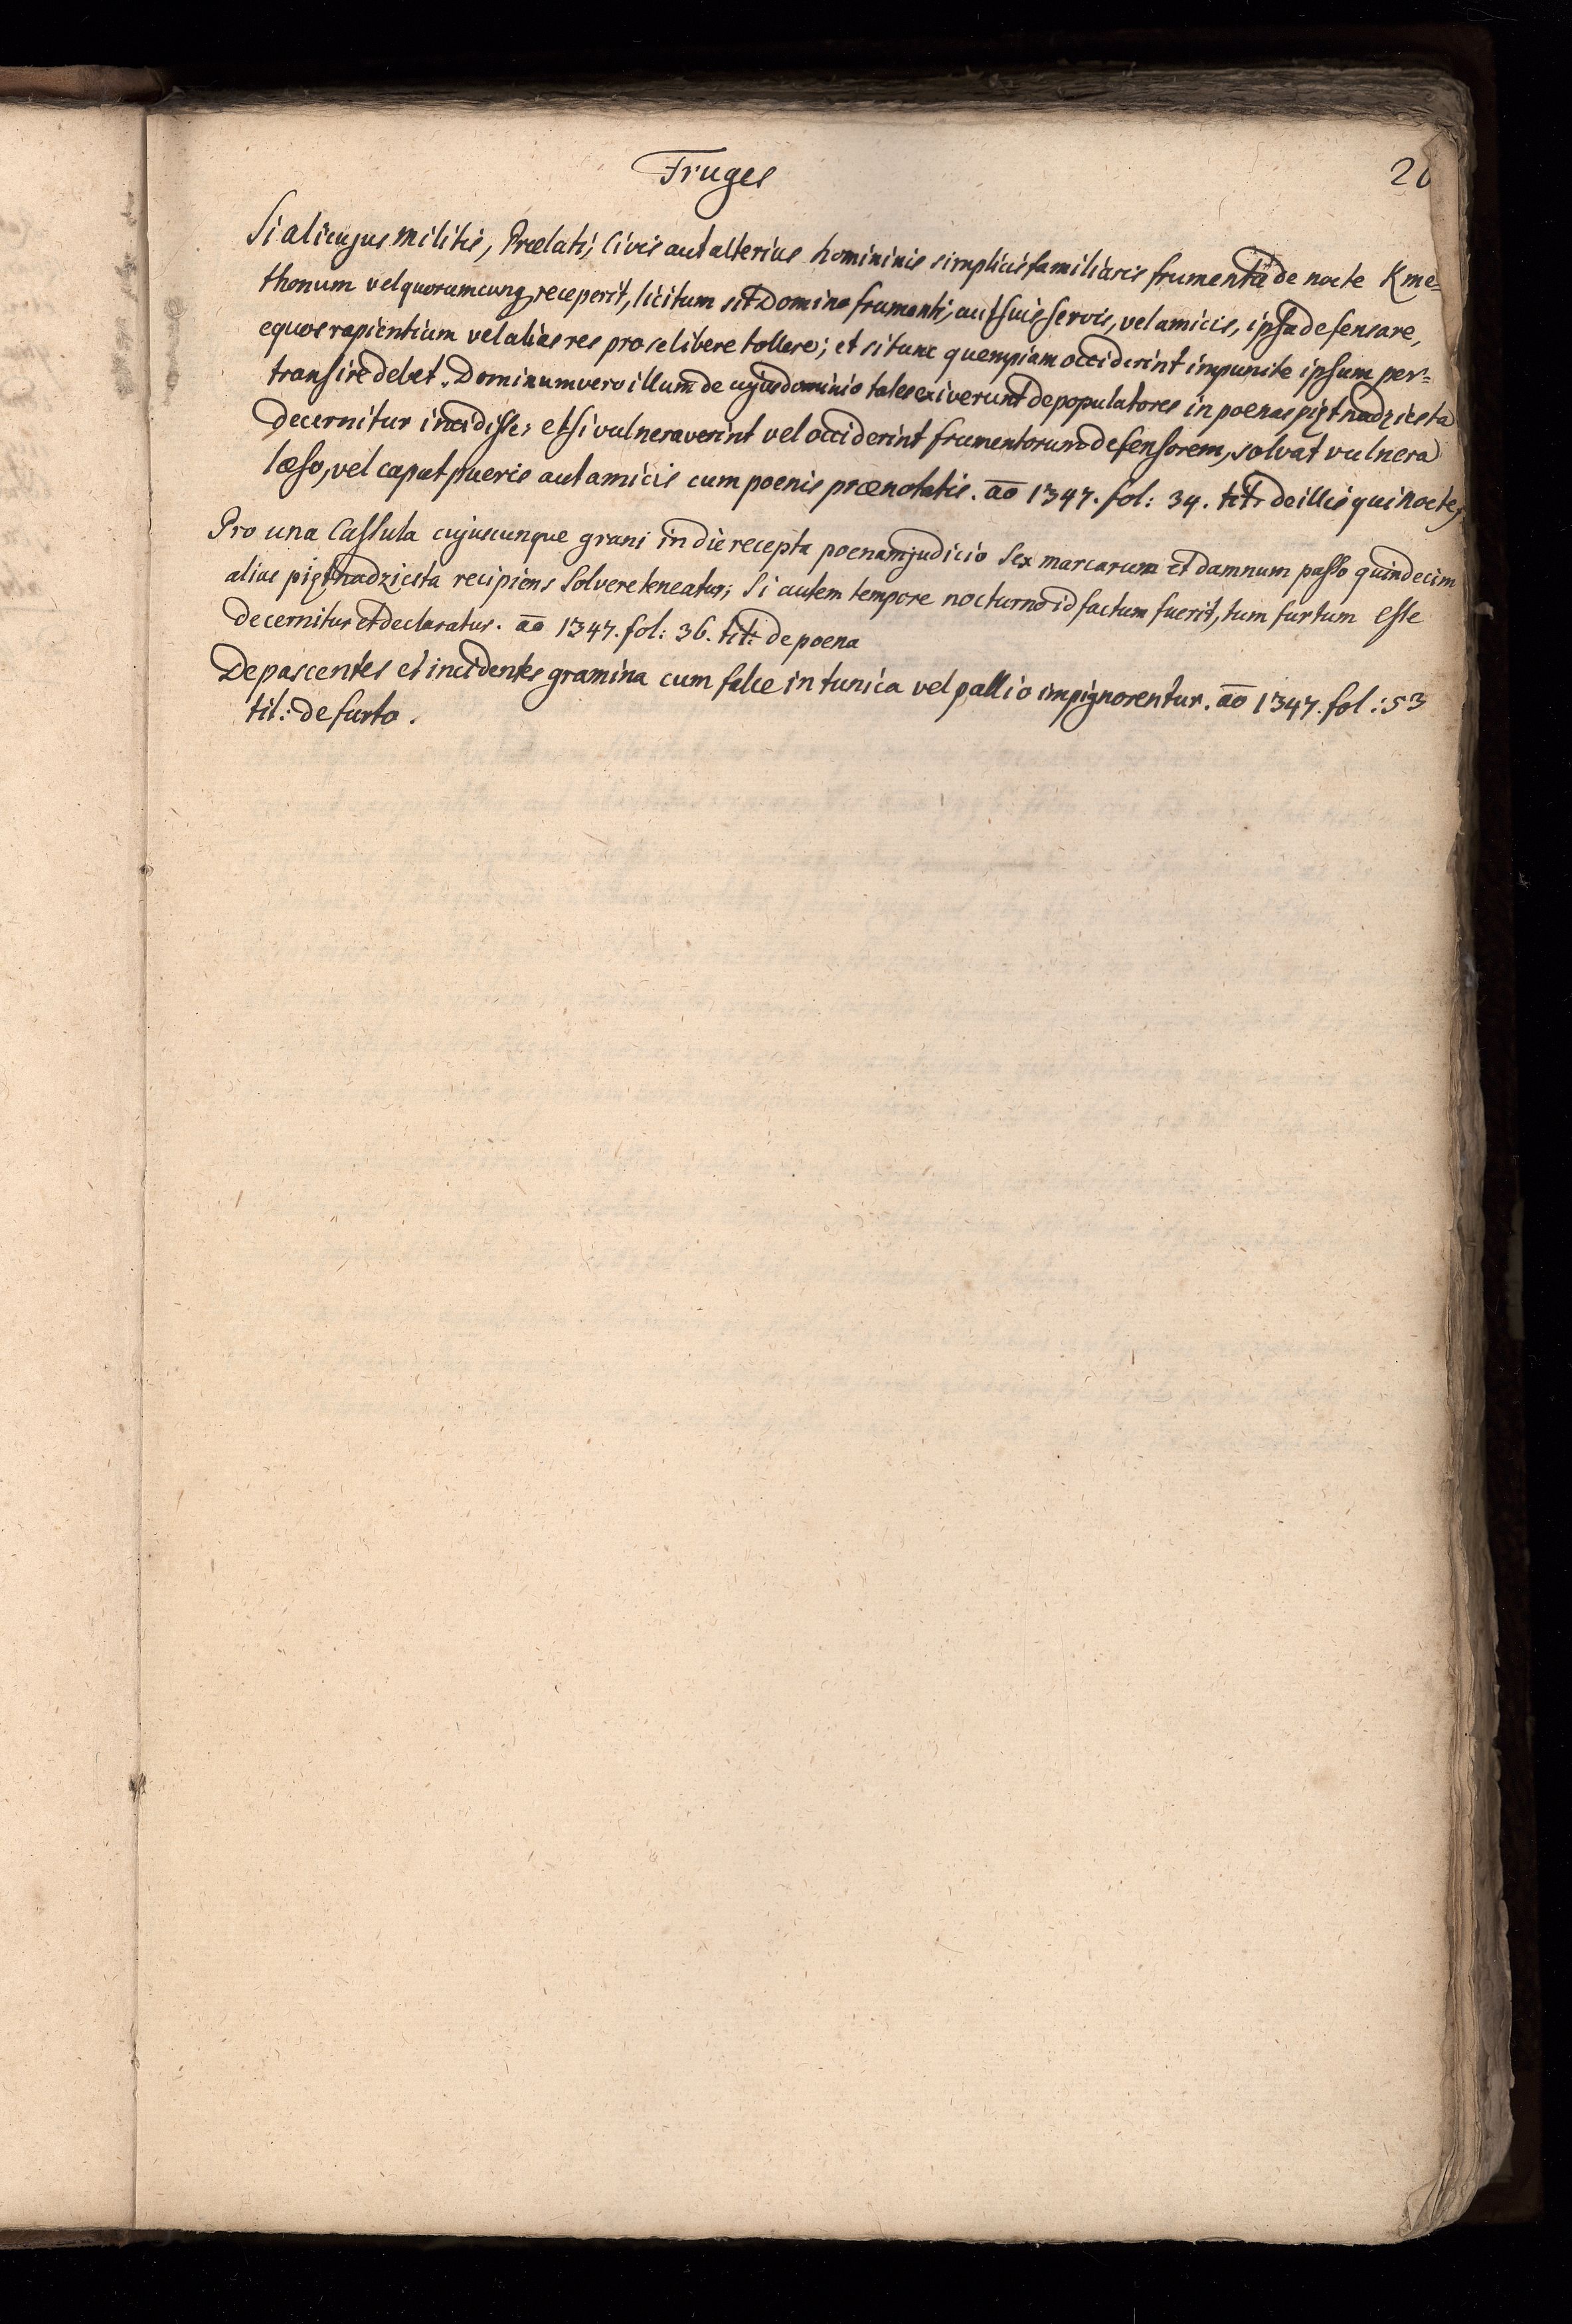 Fruges
Si alicujus militis, Prælati, Civis aut alterius homininis simplicis familiaris frumenta de nocte Kme=
thonum vel quorumcunq receperit, licitum sit Domino frumenti, aut suis servis, vel amicis, ipsa defensare,
equos rapientium vel alias res pro se libere tollere; et si tunc quempiam occiderint impunite ipsum per=
transire debet. Dominum vero illum de cujus dominio tales exiverunt depopulatores in poenas piętnadziesta
decernitur incidisse; et si vulneraverint vel occiderint frumentorum defensorem, solvat vulnera
læso, vel caput pueris aut amicis cum poenis prænotatis. ao 1347. fol: 34. tit: de illis qui nocte
Pro una Cassula cujuscunque grani in die recepta poenam judicio Sex marcarum et damnum passo quindecim
alias piętnadziesta recipiens Solvere teneatur; Si autem tempore nocturno id factum fuerit, tum furtum esse
decernitur et declaratur. ao 1347. fol: 36. tit: de poena
Depascentes et incidentes gramina cum falce in tunica vel pallio impignorentur. ao 1347. fol: 53
tit: de furto.